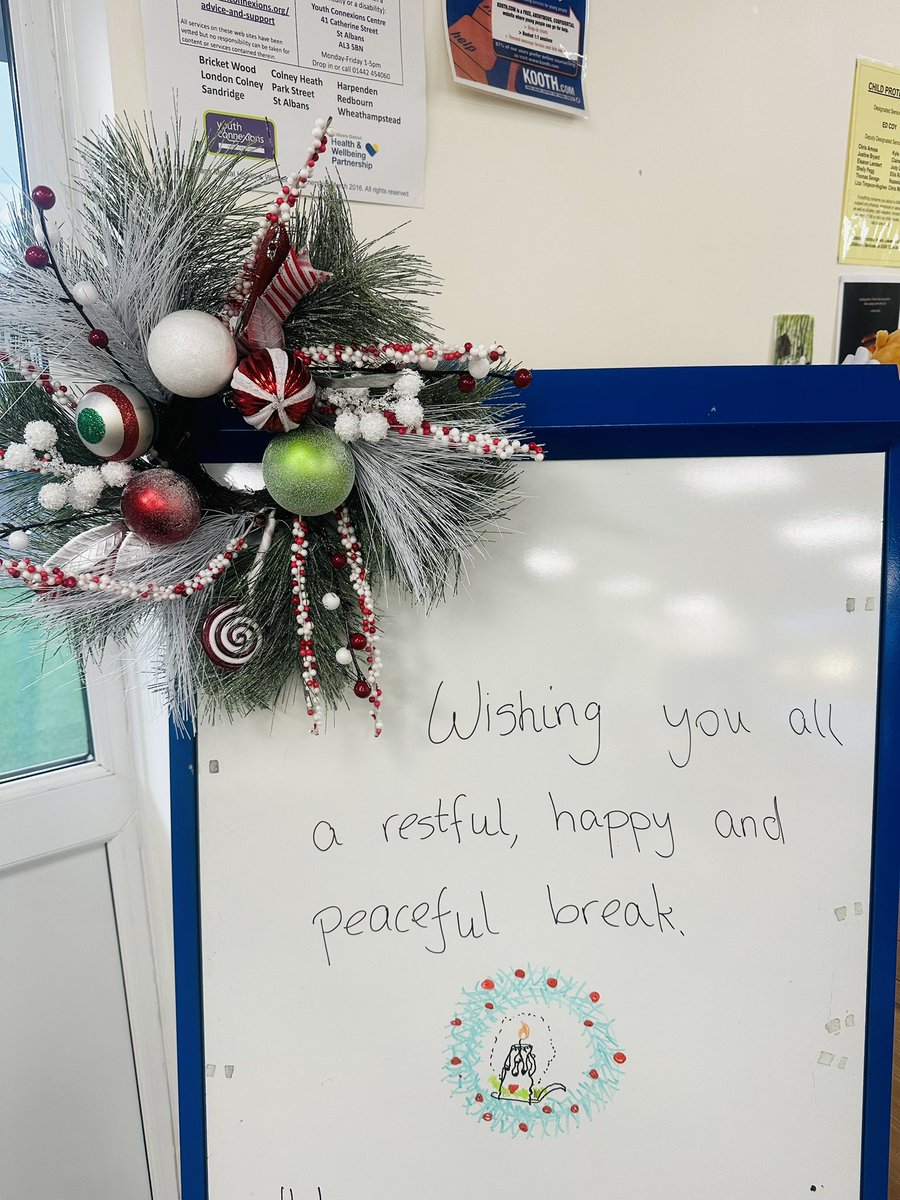 connexions.org/
advice-and-support
All services on these web sites have been
vetted but no responsibility can be taken for
content or services contained therein.
Bricket Wood
London Colney
Sandridge
Colney Heath
Park Street
St Albans
Harpenden
Redbourn
Wheathampstead
Youth Connexions Centre
41 Catherine Street
St Albans
AL3 5BN
Monday-Friday 1-5pm
Drop in or call 01442 454060
youth
connexions
Health &
Wellbeing
Partnership
2016. All rights reserved
help
KOOTH.COM
CHILD PROT
ED COY
Chris Amoss
Justine Bryant
Eleanor Lambert
Shelly Pegg
Thomas Savage
Wishing you all
a restful, happy and
peaceful break.